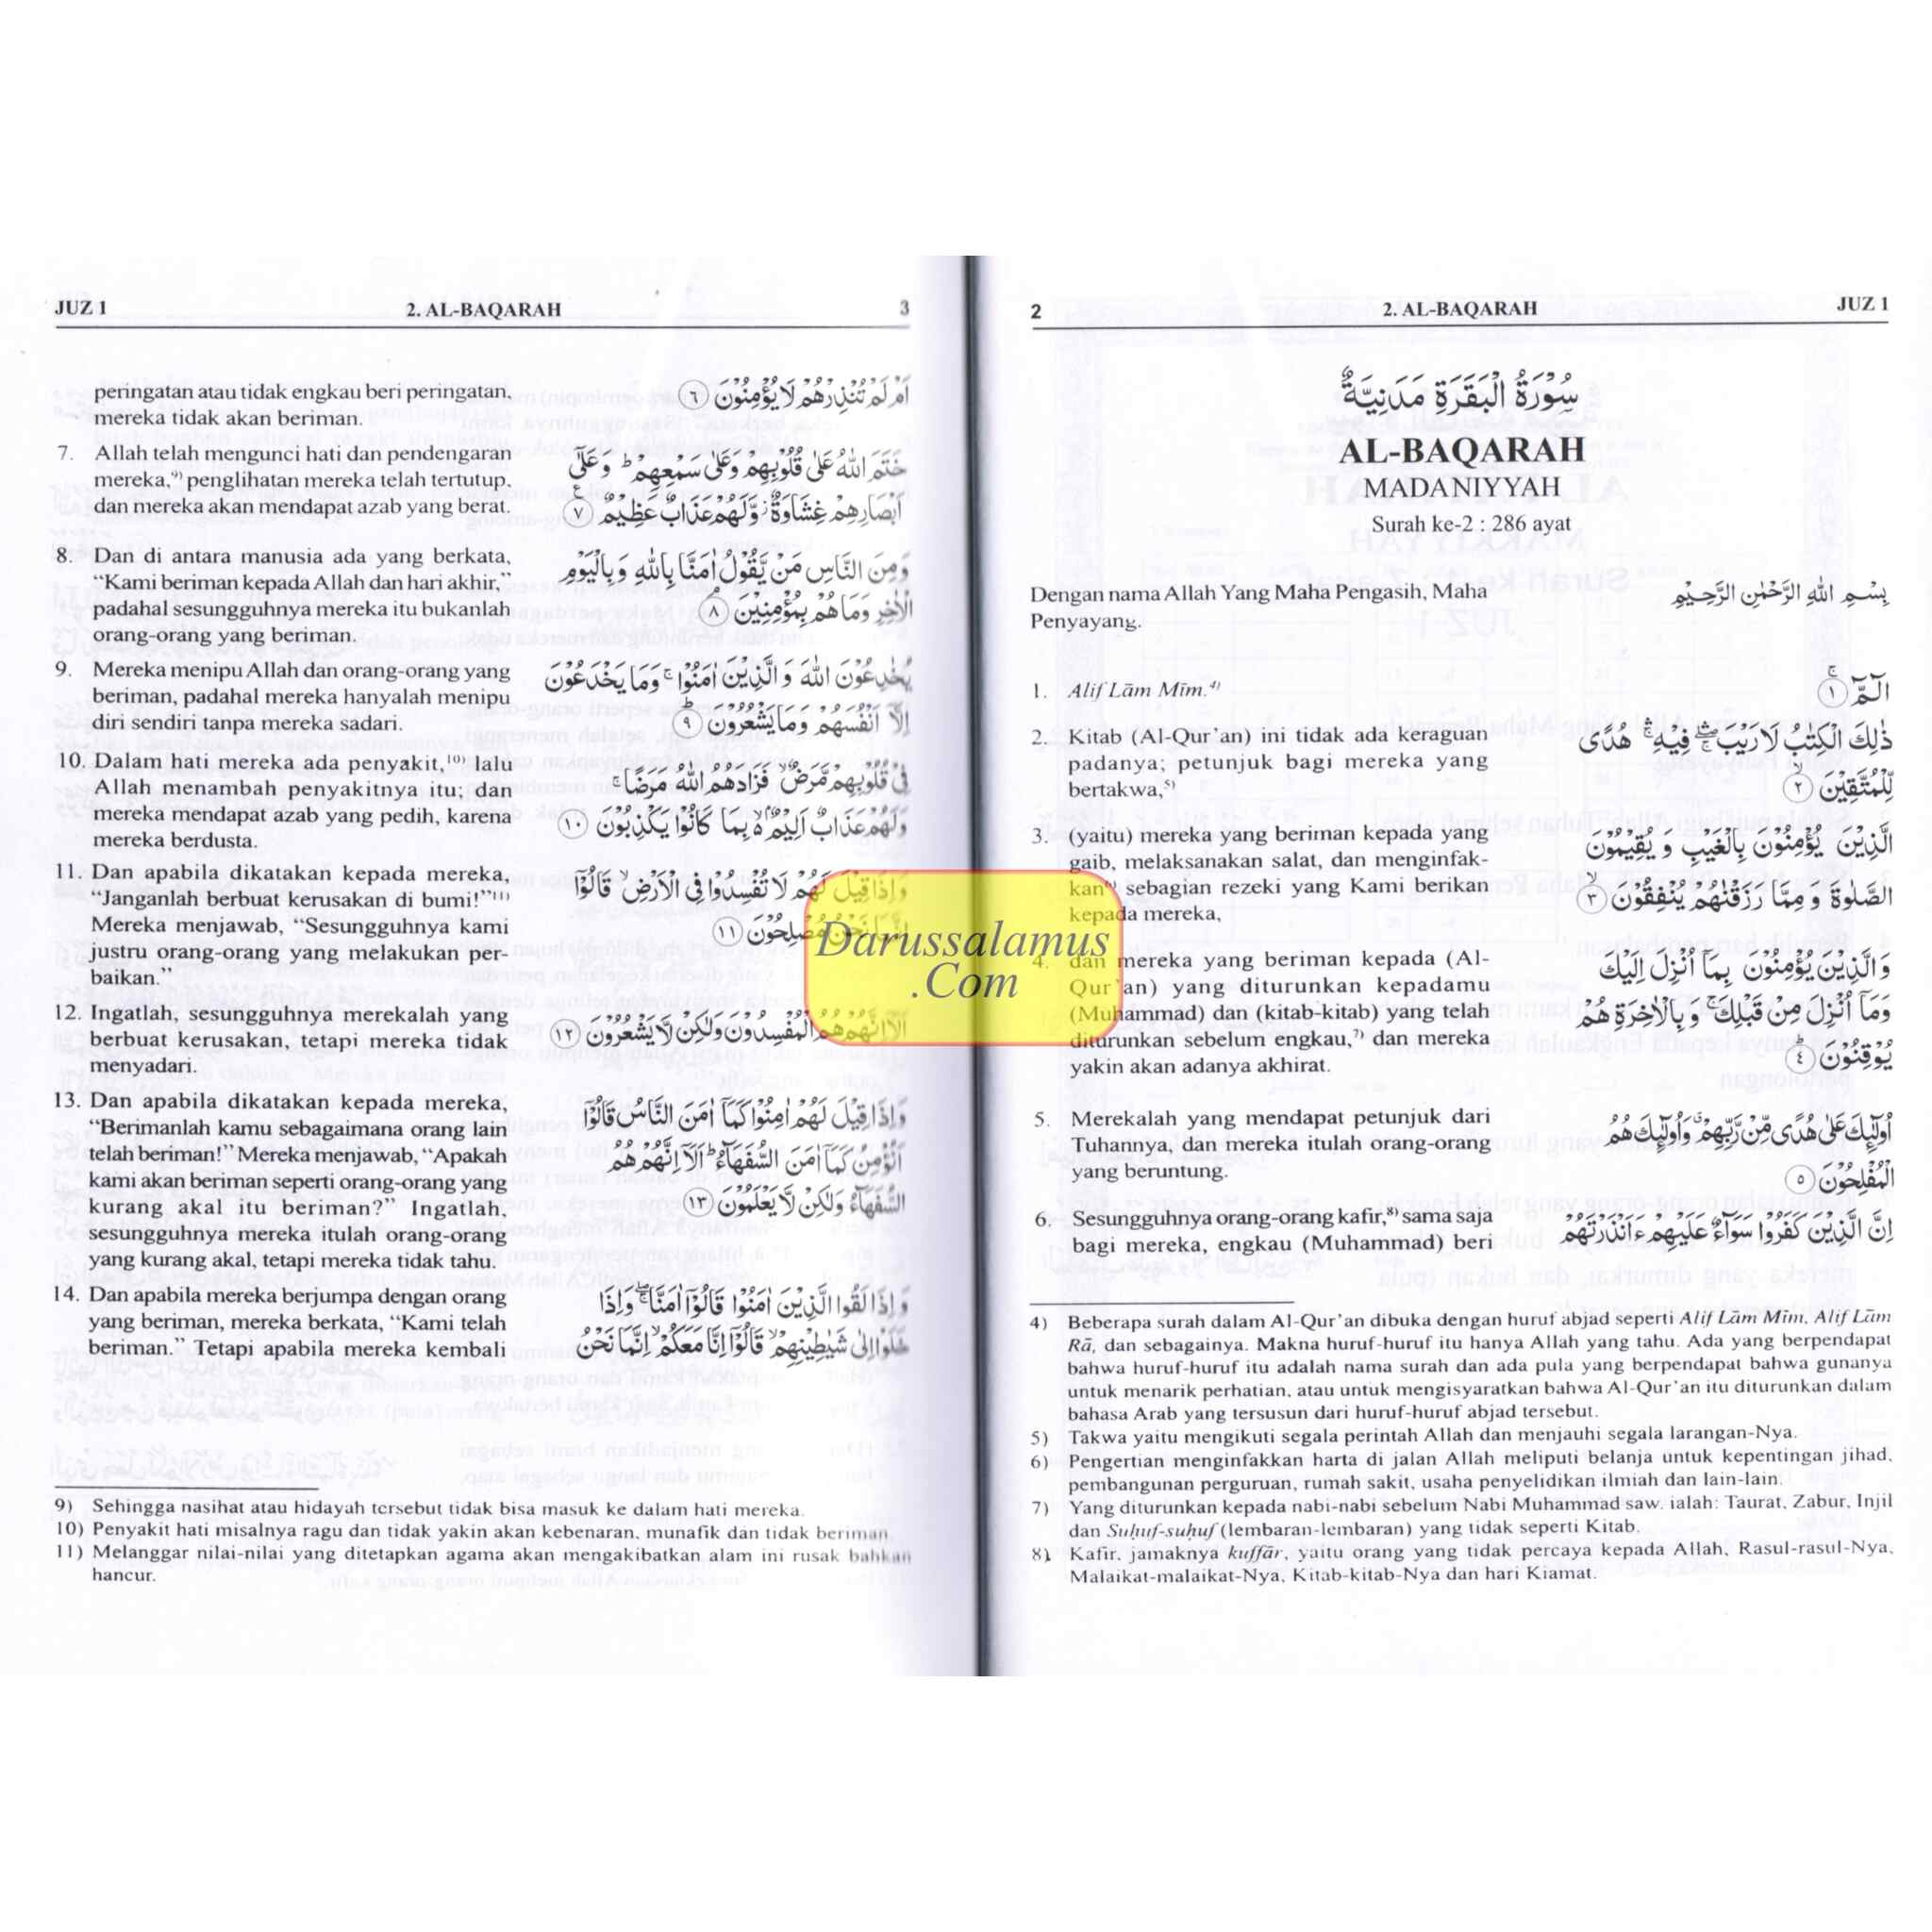 2
2. AL-BAQARAH
JUZ 1
سُوْرَةُ الْبَقَرَةِ مَدَنِيَّةٌ
AL-BAQARAH
MADANIYYAH
Surah ke-2 : 286 ayat
Dengan nama Allah Yang Maha Pengasih, Maha
Penyayang.
بِسْمِ اللّٰهِ الرَّحْمٰنِ الرَّحِيْمِ
1. Alif Lām Mīm.4)
الۤمّۤ ۚ ١
2. Kitab (Al-Qur’an) ini tidak ada keraguan
padanya; petunjuk bagi mereka yang
bertakwa,5)
ذٰلِكَ الْكِتٰبُ لَا رَيْبَ ۛ فِيْهِ ۛ هُدًى
لِّلْمُتَّقِيْنَۙ ٢
3. (yaitu) mereka yang beriman kepada yang
gaib, melaksanakan salat, dan menginfak-
kan6) sebagian rezeki yang Kami berikan
kepada mereka,
الَّذِيْنَ يُؤْمِنُوْنَ بِالْغَيْبِ وَيُقِيْمُوْنَ
الصَّلٰوةَ وَمِمَّا رَزَقْنٰهُمْ يُنْفِقُوْنَۙ ٣
4. dan mereka yang beriman kepada (Al-
Qur’an) yang diturunkan kepadamu
(Muhammad) dan (kitab-kitab) yang telah
diturunkan sebelum engkau,7) dan mereka
yakin akan adanya akhirat.
وَالَّذِيْنَ يُؤْمِنُوْنَ بِمَآ اُنْزِلَ اِلَيْكَ
وَمَآ اُنْزِلَ مِنْ قَبْلِكَ ۚ وَبِالْاٰخِرَةِ هُمْ
يُوْقِنُوْنَۗ ٤
5. Merekalah yang mendapat petunjuk dari
Tuhannya, dan mereka itulah orang-orang
yang beruntung.
اُولٰۤىِٕكَ عَلٰى هُدًى مِّنْ رَّبِّهِمْ ۙ وَاُولٰۤىِٕكَ هُمُ
الْمُفْلِحُوْنَ ٥
6. Sesungguhnya orang-orang kafir,8) sama saja
bagi mereka, engkau (Muhammad) beri
اِنَّ الَّذِيْنَ كَفَرُوْا سَوَاۤءٌ عَلَيْهِمْ ءَاَنْذَرْتَهُمْ
4) Beberapa surah dalam Al-Qur’an dibuka dengan huruf abjad seperti Alif Lām Mīm, Alif Lām
Rā, dan sebagainya. Makna huruf-huruf itu hanya Allah yang tahu. Ada yang berpendapat
bahwa huruf-huruf itu adalah nama surah dan ada pula yang berpendapat bahwa gunanya
untuk menarik perhatian, atau untuk mengisyaratkan bahwa Al-Qur’an itu diturunkan dalam
bahasa Arab yang tersusun dari huruf-huruf abjad tersebut.
5) Takwa yaitu mengikuti segala perintah Allah dan menjauhi segala larangan-Nya.
6) Pengertian menginfakkan harta di jalan Allah meliputi belanja untuk kepentingan jihad,
pembangunan perguruan, rumah sakit, usaha penyelidikan ilmiah dan lain-lain.
7) Yang diturunkan kepada nabi-nabi sebelum Nabi Muhammad saw. ialah: Taurat, Zabur, Injil
dan Ṣuḥuf-ṣuḥuf (lembaran-lembaran) yang tidak seperti Kitab.
8) Kafir, jamaknya kuffār, yaitu orang yang tidak percaya kepada Allah, Rasul-rasul-Nya,
Malaikat-malaikat-Nya, Kitab-kitab-Nya dan hari Kiamat.
JUZ 1
2. AL-BAQARAH
3
peringatan atau tidak engkau beri peringatan,
mereka tidak akan beriman.
اَمْ لَمْ تُنْذِرْهُمْ لَا يُؤْمِنُوْنَ ٦
7. Allah telah mengunci hati dan pendengaran
mereka,9) penglihatan mereka telah tertutup,
dan mereka akan mendapat azab yang berat.
خَتَمَ اللّٰهُ عَلٰى قُلُوْبِهِمْ وَعَلٰى سَمْعِهِمْ ۗ وَعَلٰٓى
اَبْصَارِهِمْ غِشَاوَةٌ ۖ وَّلَهُمْ عَذَابٌ عَظِيْمٌ ࣖ ٧
8. Dan di antara manusia ada yang berkata,
“Kami beriman kepada Allah dan hari akhir,”
padahal sesungguhnya mereka itu bukanlah
orang-orang yang beriman.
وَمِنَ النَّاسِ مَنْ يَّقُوْلُ اٰمَنَّا بِاللّٰهِ وَبِالْيَوْمِ
الْاٰخِرِ وَمَا هُمْ بِمُؤْمِنِيْنَۘ ٨
9. Mereka menipu Allah dan orang-orang yang
beriman, padahal mereka hanyalah menipu
diri sendiri tanpa mereka sadari.
يُخٰدِعُوْنَ اللّٰهَ وَالَّذِيْنَ اٰمَنُوْا ۚ وَمَا يَخْدَعُوْنَ
اِلَّآ اَنْفُسَهُمْ وَمَا يَشْعُرُوْنَۗ ٩
10. Dalam hati mereka ada penyakit,10) lalu
Allah menambah penyakitnya itu; dan
mereka mendapat azab yang pedih, karena
mereka berdusta.
فِيْ قُلُوْبِهِمْ مَّرَضٌۙ فَزَادَهُمُ اللّٰهُ مَرَضًاۚ
وَلَهُمْ عَذَابٌ اَلِيْمٌ ۢ ەۙ بِمَا كَانُوْا يَكْذِبُوْنَ ١٠
11. Dan apabila dikatakan kepada mereka,
“Janganlah berbuat kerusakan di bumi!”11)
Mereka menjawab, “Sesungguhnya kami
justru orang-orang yang melakukan per-
baikan.”
وَاِذَا قِيْلَ لَهُمْ لَا تُفْسِدُوْا فِى الْاَرْضِۙ قَالُوْٓا
اِنَّمَا نَحْنُ مُصْلِحُوْنَ ١١
12. Ingatlah, sesungguhnya merekalah yang
berbuat kerusakan, tetapi mereka tidak
menyadari.
اَلَآ اِنَّهُمْ هُمُ الْمُفْسِدُوْنَ وَلٰكِنْ لَّا يَشْعُرُوْنَ ١٢
13. Dan apabila dikatakan kepada mereka,
“Berimanlah kamu sebagaimana orang lain
telah beriman!” Mereka menjawab, “Apakah
kami akan beriman seperti orang-orang yang
kurang akal itu beriman?” Ingatlah,
sesungguhnya mereka itulah orang-orang
yang kurang akal, tetapi mereka tidak tahu.
وَاِذَا قِيْلَ لَهُمْ اٰمِنُوْا كَمَآ اٰمَنَ النَّاسُ قَالُوْٓا
اَنُؤْمِنُ كَمَآ اٰمَنَ السُّفَهَاۤءُ ۗ اَلَآ اِنَّهُمْ هُمُ
السُّفَهَاۤءُ وَلٰكِنْ لَّا يَعْلَمُوْنَ ١٣
14. Dan apabila mereka berjumpa dengan orang
yang beriman, mereka berkata, “Kami telah
beriman.” Tetapi apabila mereka kembali
وَاِذَا لَقُوا الَّذِيْنَ اٰمَنُوْا قَالُوْٓا اٰمَنَّا ۚ وَاِذَا
خَلَوْا اِلٰى شَيٰطِيْنِهِمْ ۙ قَالُوْٓا اِنَّا مَعَكُمْ ۙ اِنَّمَا نَحْنُ
9) Sehingga nasihat atau hidayah tersebut tidak bisa masuk ke dalam hati mereka.
10) Penyakit hati misalnya ragu dan tidak yakin akan kebenaran, munafik dan tidak beriman
11) Melanggar nilai-nilai yang ditetapkan agama akan mengakibatkan alam ini rusak bahkan
hancur.
Darussalamus
.Com